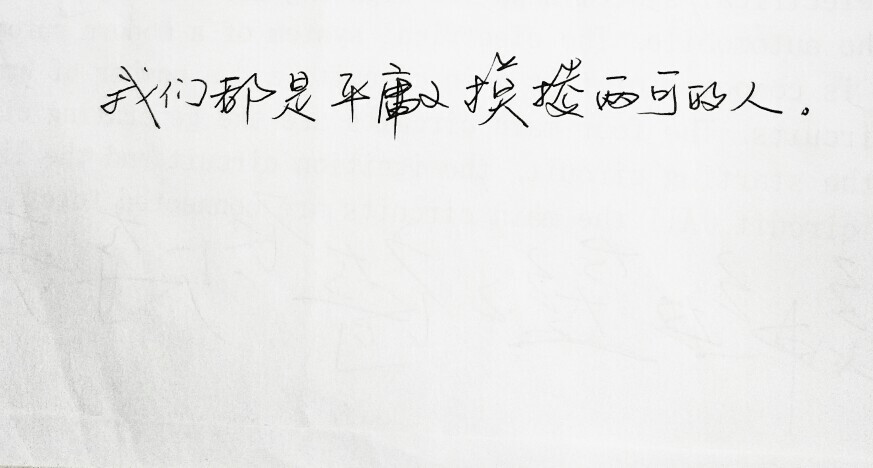 我们都是平庸又模棱两可的人。